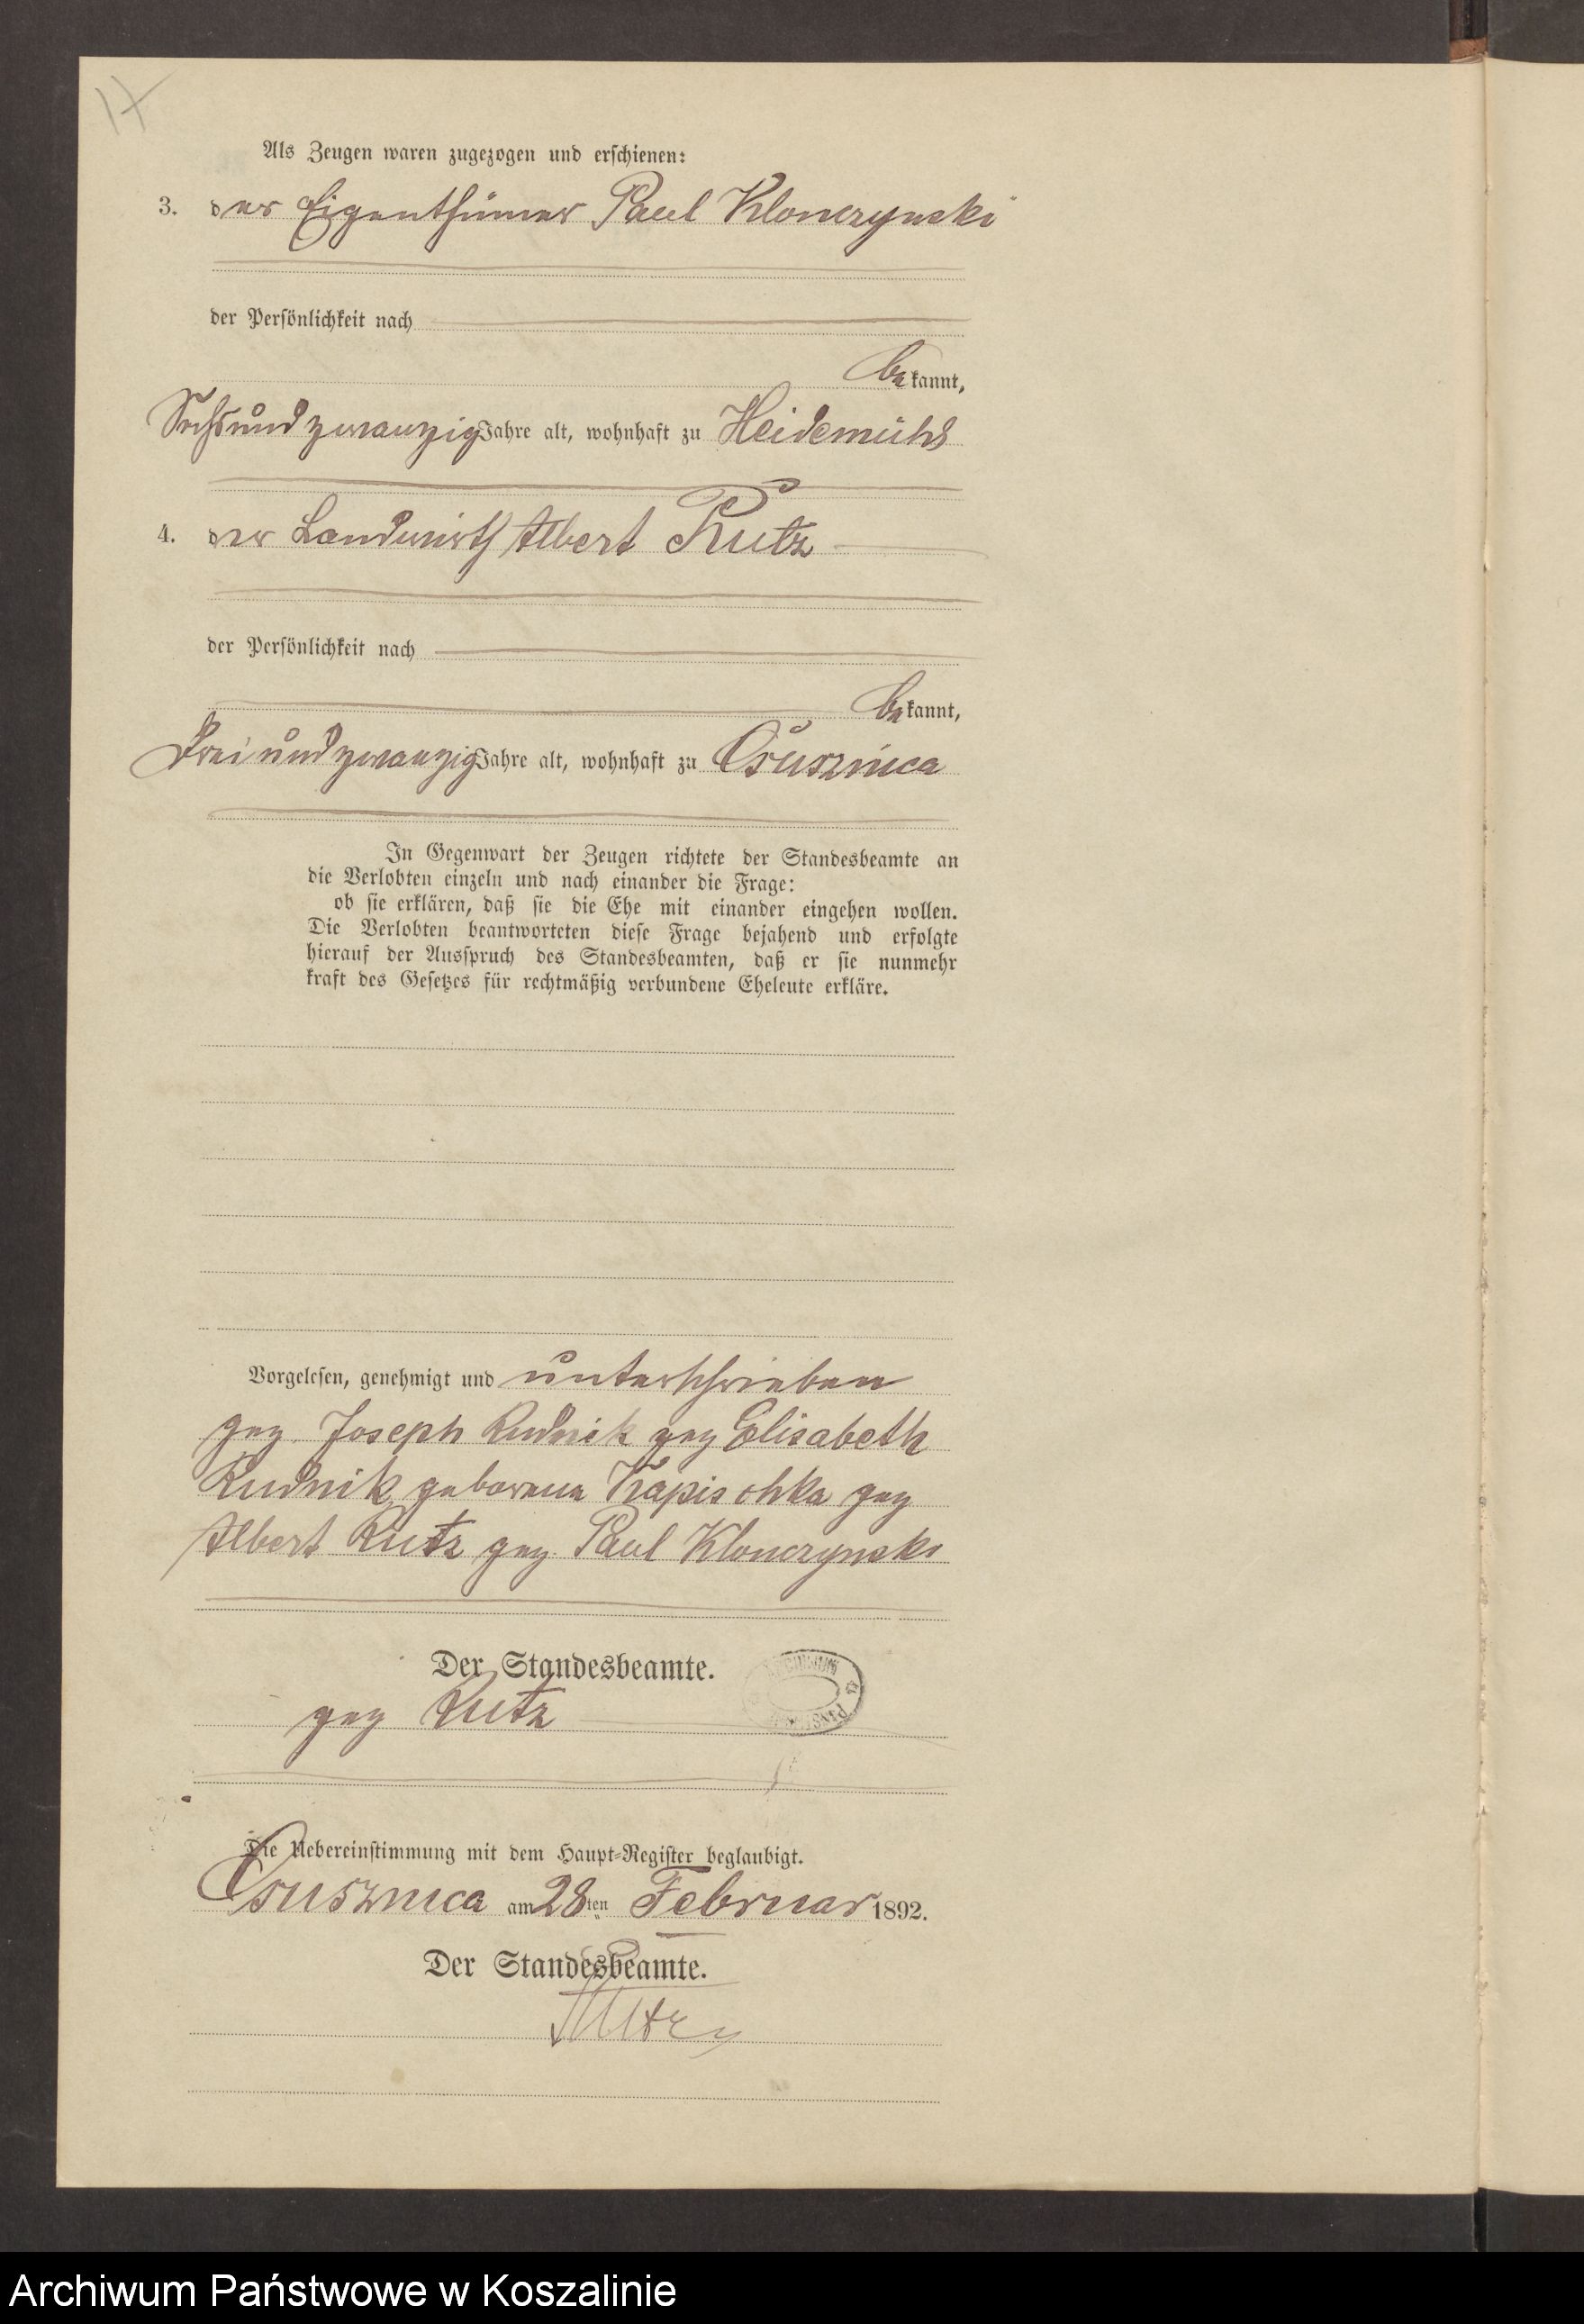 17
Als Zeugen waren zugezogen und erschienen:
3. der Eigenthümer Paul Klonczynski
der Persönlichkeit nach
be kannt,
Sechsundzwanzig Jahre alt, wohnhaft zu Heidemühl
4. der Landwirth Albert Rutz
der Persönlichkeit nach
be kannt,
Dreiundzwanzig Jahre alt, wohnhaft zu Osusznica
In Gegenwart der Zeugen richtete der Standesbeamte an
die Verlobten einzeln und nach einander die Frage:
ob sie erklären, daß sie die Ehe mit einander eingehen wollen.
Die Verlobten beantworteten diese Frage bejahend und erfolgte
hierauf der Ausspruch des Standesbeamten, daß er sie nunmehr
kraft des Gesetzes für rechtmäßig verbundene Eheleute erkläre.
Vorgelesen, genehmigt und unterschrieben
gez. Joseph Rudnik gez Elisabeth
Rudnik geborene Trapischka gez
Albert Rutz gez. Paul Klonczynski
Der Standesbeamte.
gez Rutz
Die Uebereinstimmung mit dem Haupt-Register beglaubigt.
Osusznica am 28ten Februar 1892.
Der Standesbeamte.
Rutz
Archiwum Państwowe w Koszalinie